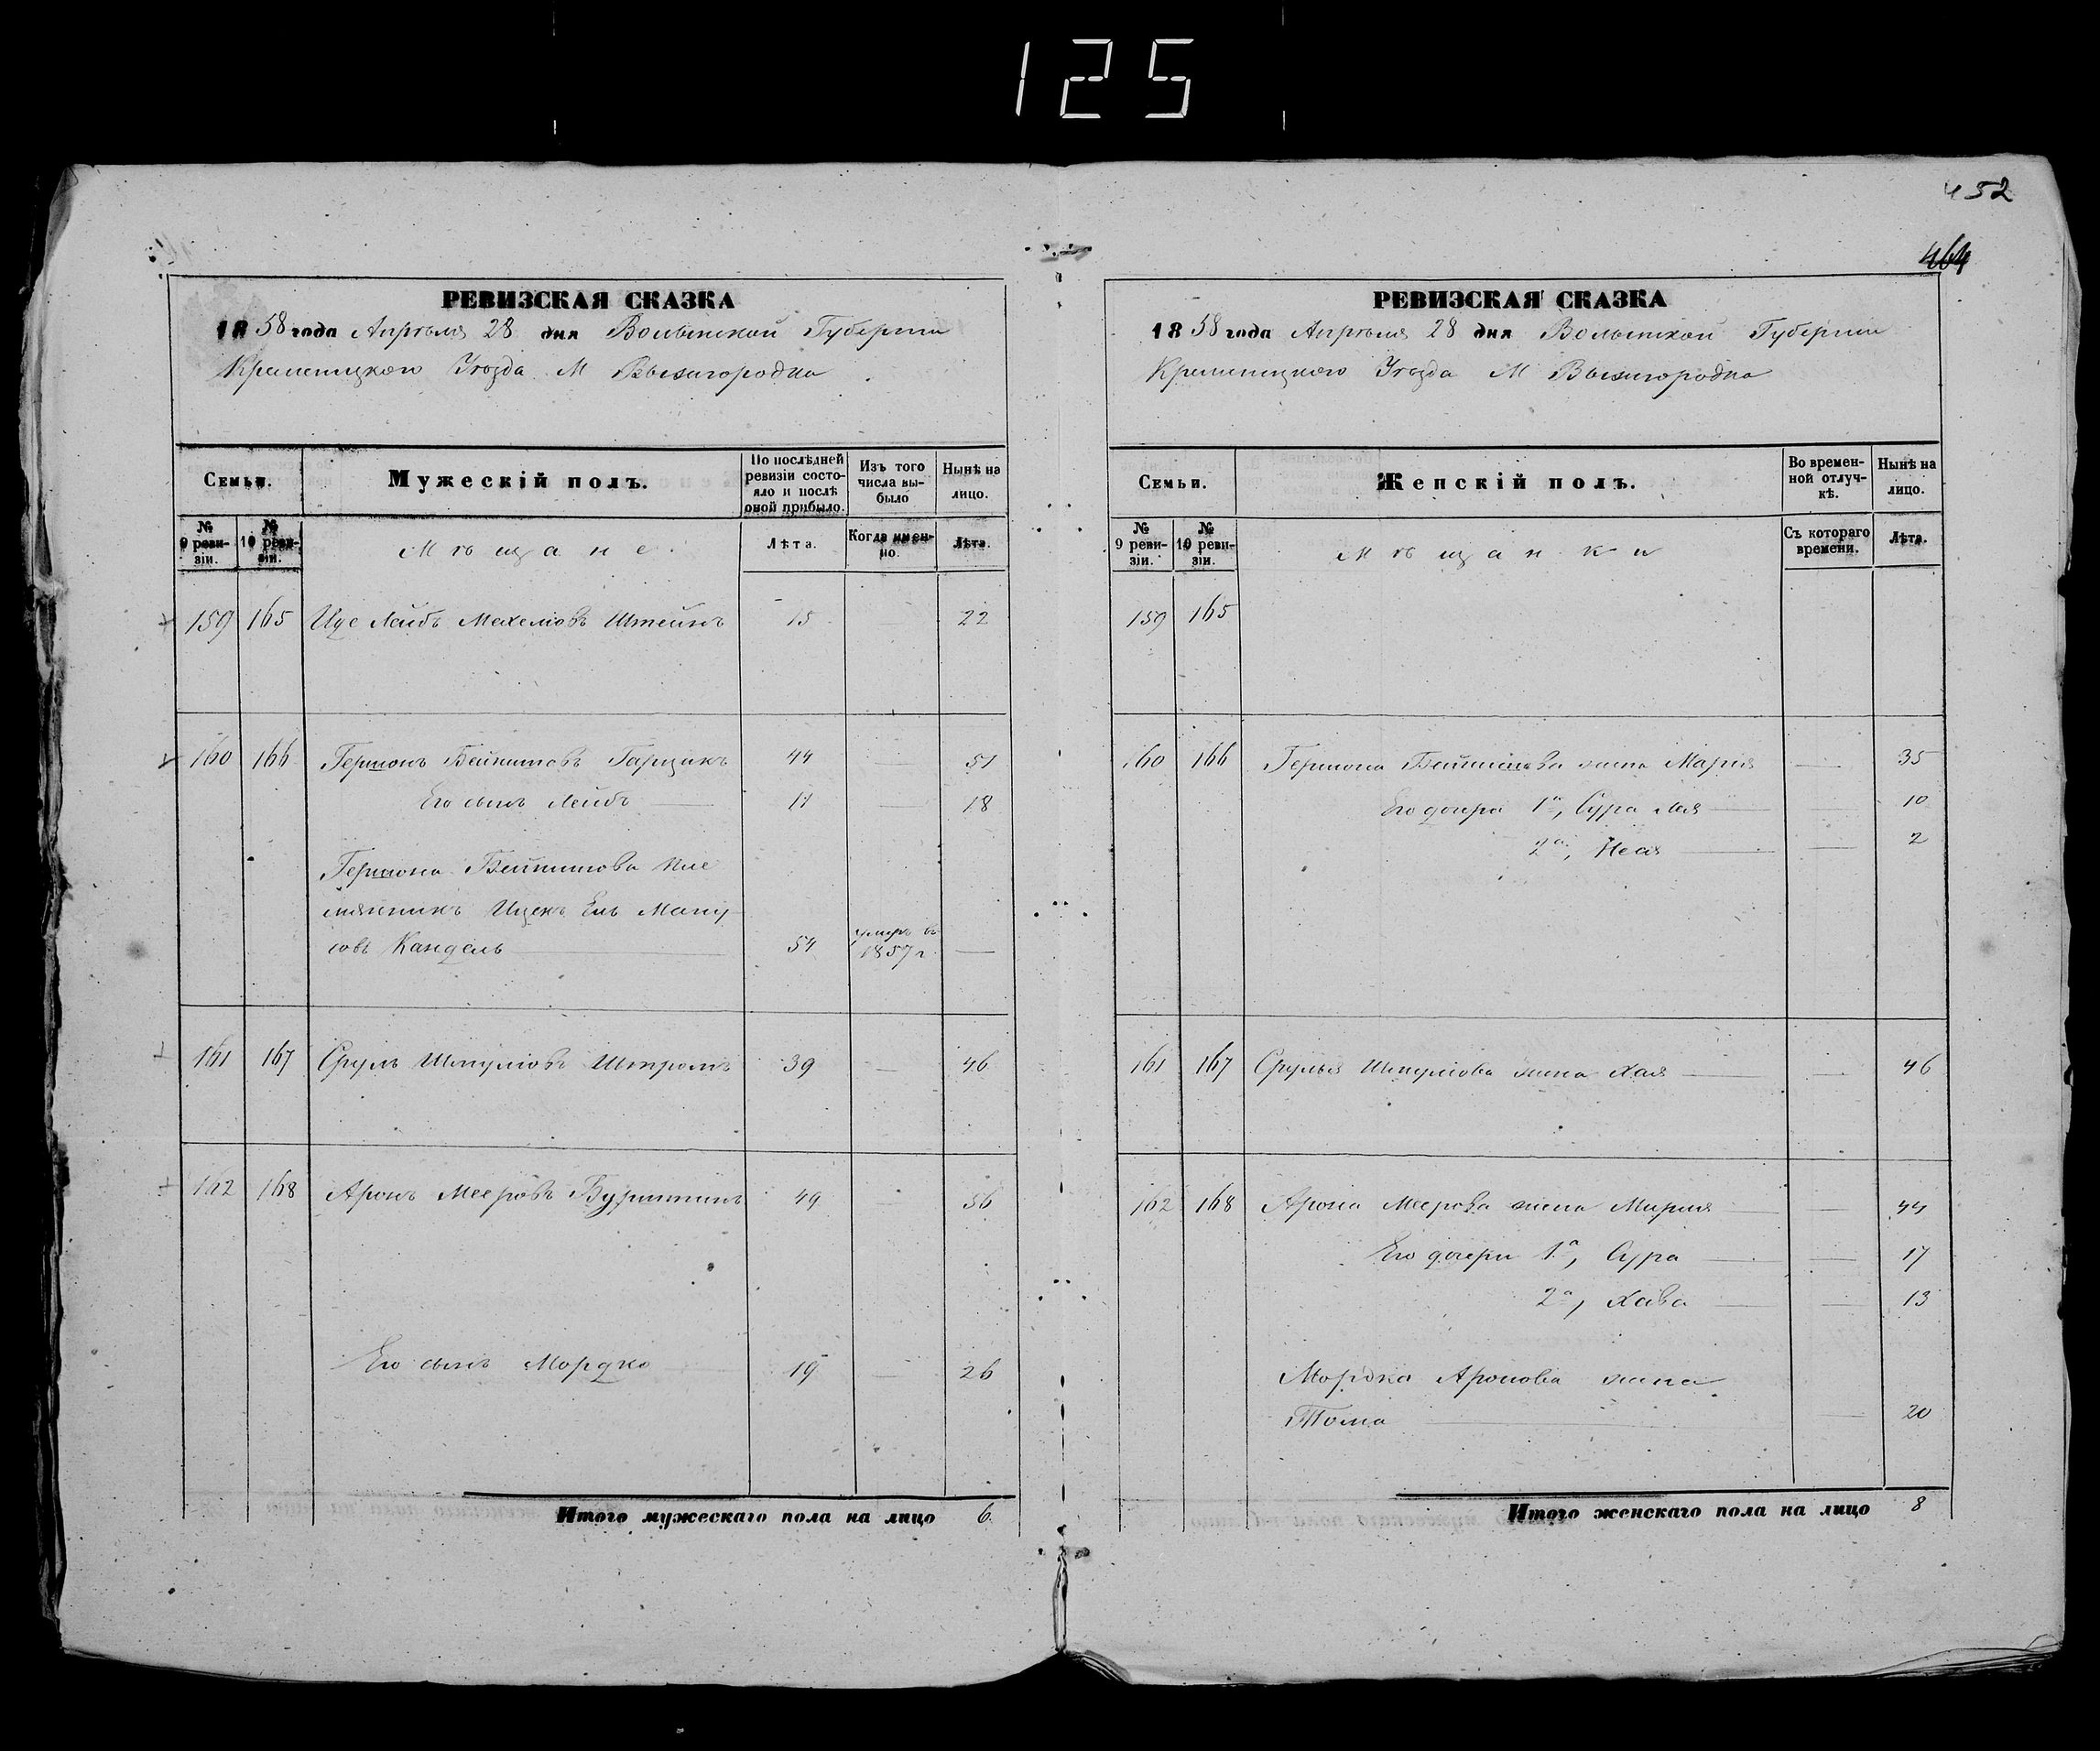 125
452
464
РЕВИЗСКАЯ СКАЗКА
1858 года Апрѣля 28 дня Волынской Губерніи
Кременецкого Уѣзда М Вышгородка
Семьи.
Мужескій полъ.
По послѣдней ревизіи состояло и послѣ оной прибыло.
Изъ того числа выбыло
Нынѣ на лицо.
№ 9 ревизіи.
№ 10 ревизіи.
Мѣщане.
Лѣта.
Когда именно.
Лѣта.
159 165 Ице Лейбъ Мехелювъ Штейнъ 15 22
160 166 Гершонъ Бейнишовъ Гарцикъ 44 — 51
Его сынъ Лейбъ — 11 — 18
Гершона Бейнишова пле
мянникъ Ицек Ель Ману
совъ Кандель — 54 умеръ въ 1857 г —
161 167 Сруль Шмулювъ Штромъ 39 — 46
162 168 Аронъ Мееровъ Бурштинъ 49 — 56
Его сынъ Мордко 19 — 26
Итого мужескаго пола на лицо 6
РЕВИЗСКАЯ СКАЗКА
1858 года Апрѣля 28 дня Волынской Губерніи
Кременецкого Уѣзда М Вышгородка
Семьи.
Женскій полъ.
Во временной отлучкѣ.
Нынѣ на лицо.
№ 9 ревизіи.
№ 10 ревизіи.
Мѣщанки
Съ котораго времени.
Лѣта.
159 165
160 166 Гершона Бейнишова жена Марія — 35
Его дочери 1а, Сура Лая — 10
2а, Неся — 2
161 167 Срулья Шмулюва жена Хая — 46
162 168 Арона Меерова жена Мирия — 44
Его дочери 1а, Сура — 17
2а, Хава — 13
Мордка Аронова жена
Тома — 20
Итого женскаго пола на лицо 8